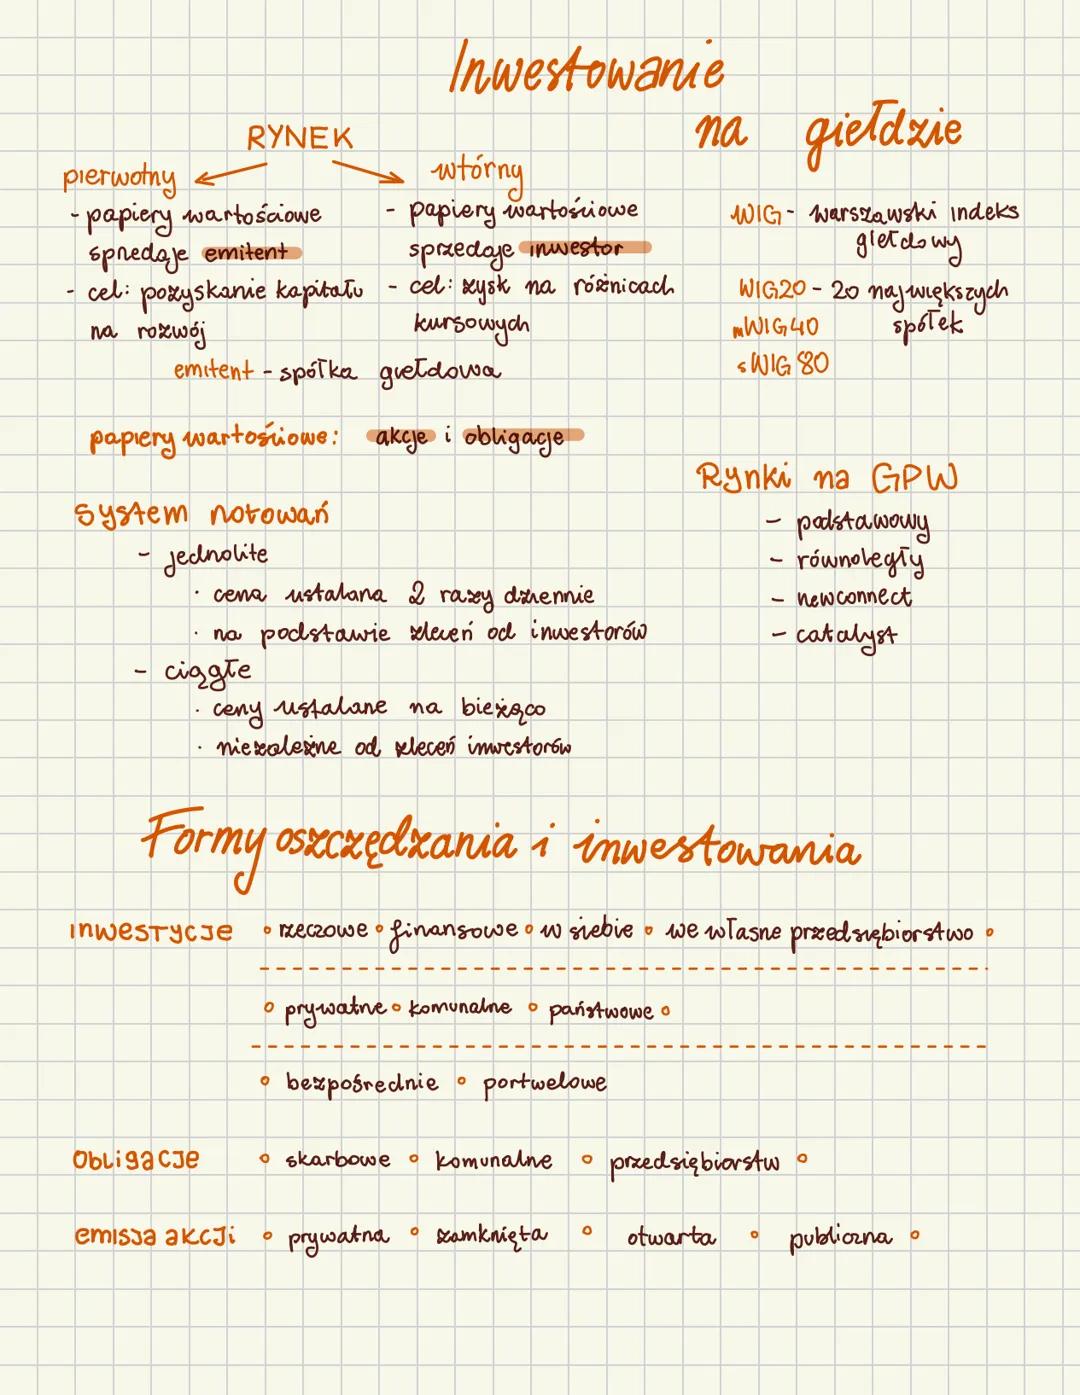 Inwestowanie
na giełdzie
RYNEK
pierwotny
- papiery wartościowe
sprzedaje emitent
- cel: pozyskanie kapitału
na rozwój
wtórny
- papiery wartościowe
sprzedaje inwestor
- cel: zysk na różnicach
kursowych
emitent - spółka giełdowa
WIG - warszawski indeks
giełdowy
WIG20 - 20 największych
spółek
mWIG40
sWIG80
papiery wartościowe: akcje i obligacje
System notowań
- jednolite
· cena ustalana 2 razy dziennie
· na podstawie zleceń od inwestorów
- ciągłe
· ceny ustalane na bieżąco
· niezależne od zleceń inwestorów
Rynki na GPW
- podstawowy
- równoległy
- newconnect
- catalyst
Formy oszczędzania i inwestowania
inwestycje ∘ rzeczowe ∘ finansowe ∘ w siebie ∘ we własne przedsiębiorstwo ∘
∘ prywatne ∘ komunalne ∘ państwowe ∘
∘ bezpośrednie ∘ portwelowe
Obligacje ∘ skarbowe ∘ komunalne ∘ przedsiębiorstw ∘
emisja akcji ∘ prywatna ∘ zamknięta ∘ otwarta ∘ publiczna ∘